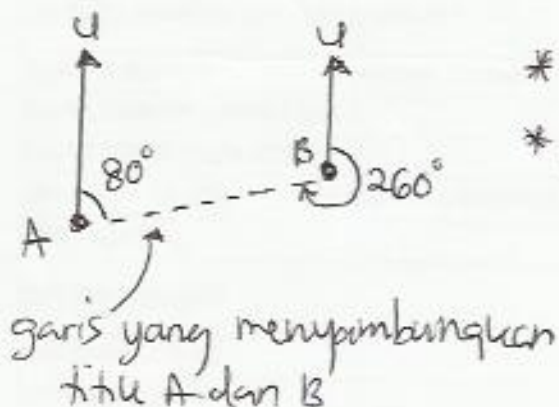 U
U
*
80°
B
260°
*
A
garis yang menyambungkan
titik A dan B